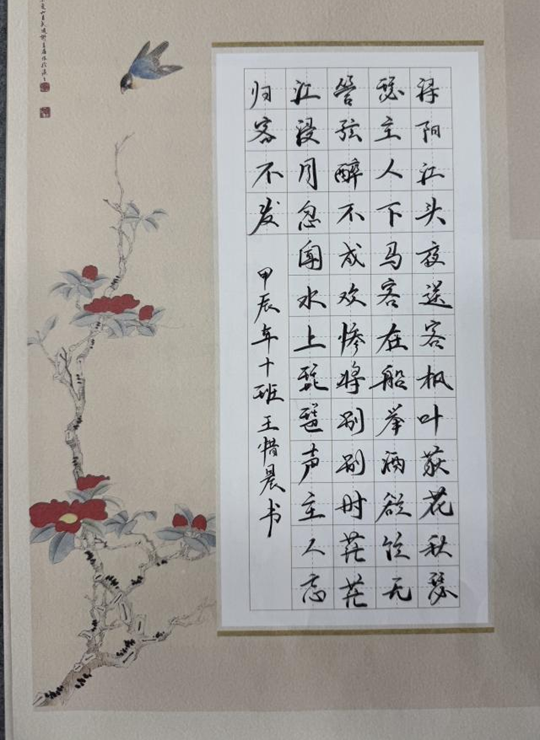 浔阳江头夜送客枫叶荻花秋瑟
瑟主人下马客在船举酒欲饮无
管弦醉不成欢惨将别别时茫茫
江浸月忽闻水上琵琶声主人忘
归客不发 甲辰年十班王惜晨书